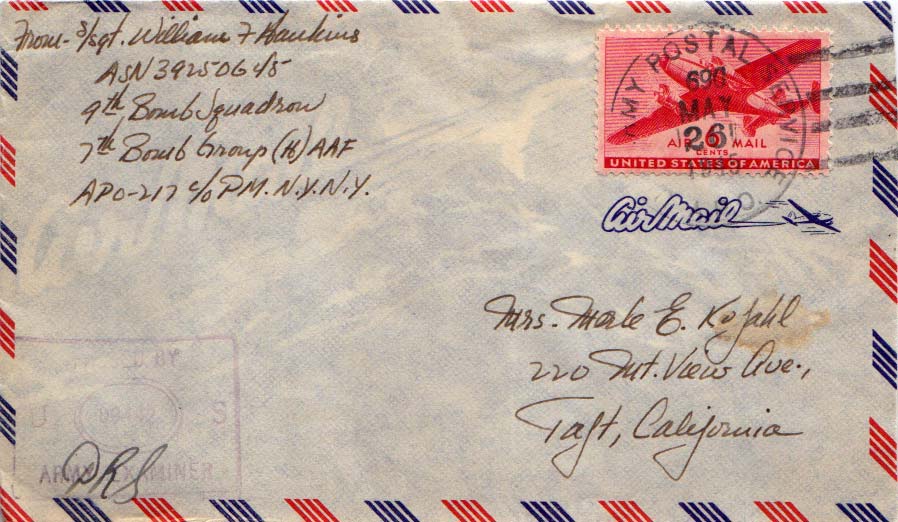 From- S/Sgt. William F Hawkins
ASN 39250645
9th Bomb Squadron
7th Bomb Group (H) AAF
APO-217 c/o P.M. N.Y. N.Y.
ARMY POSTAL SERVICE
690
MAY
26
AIR MAIL
CENTS
UNITED STATES OF AMERICA
Air Mail
Mrs. Merle E. Kofahl
220 Mt. View Ave.,
Taft, California
D BY
U S
ARMY EXAMINER